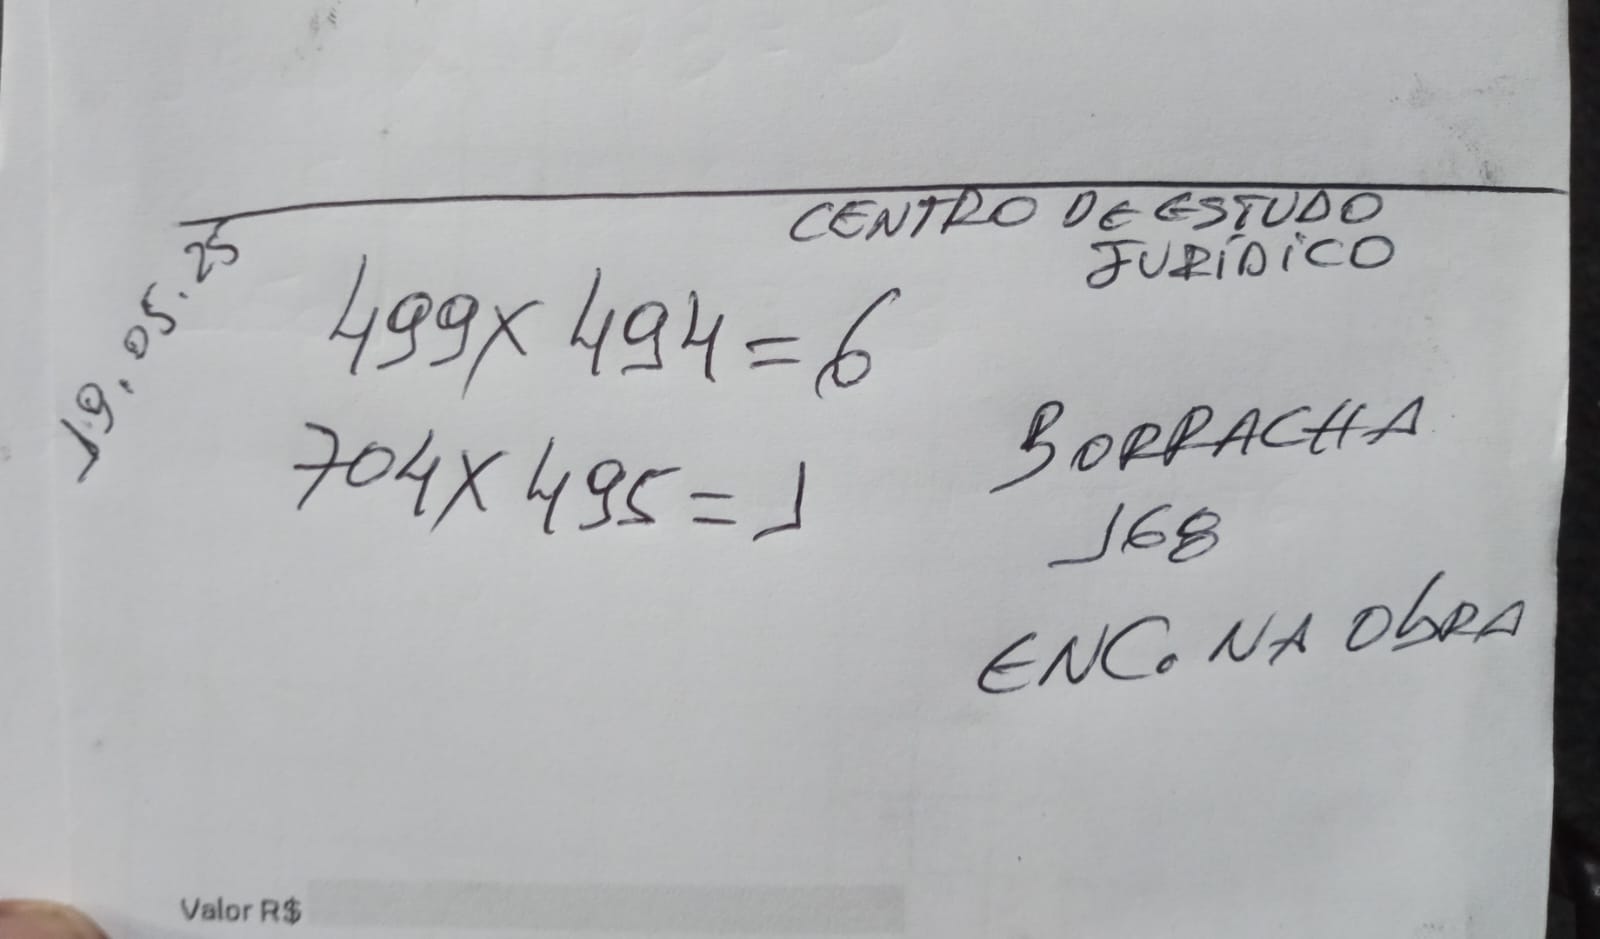 CENTRO DE ESTUDO
JURÍDICO
19.05.25
499x 494=6
704x 495=1
BORRACHA
168
ENC. NA ObRA
Valor R$